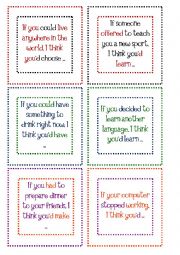 If you could live
anywhere in the
world, I think
you'd choose ...
If someone
offered to teach
you a new sport,
I think you'd
learn ...
If you could have
something to
drink right now, I
think you'd have
...
If you decided to
learn another
language, I think
you'd learn ...
If you had to
prepare dinner
to your friends, I
think you'd make
...
If your computer
stopped working,
I think you'd...